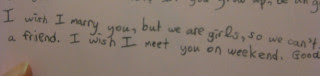 I wish I marry you, but we are girls, so we can't
a friend. I wish I meet you on weekend. Good